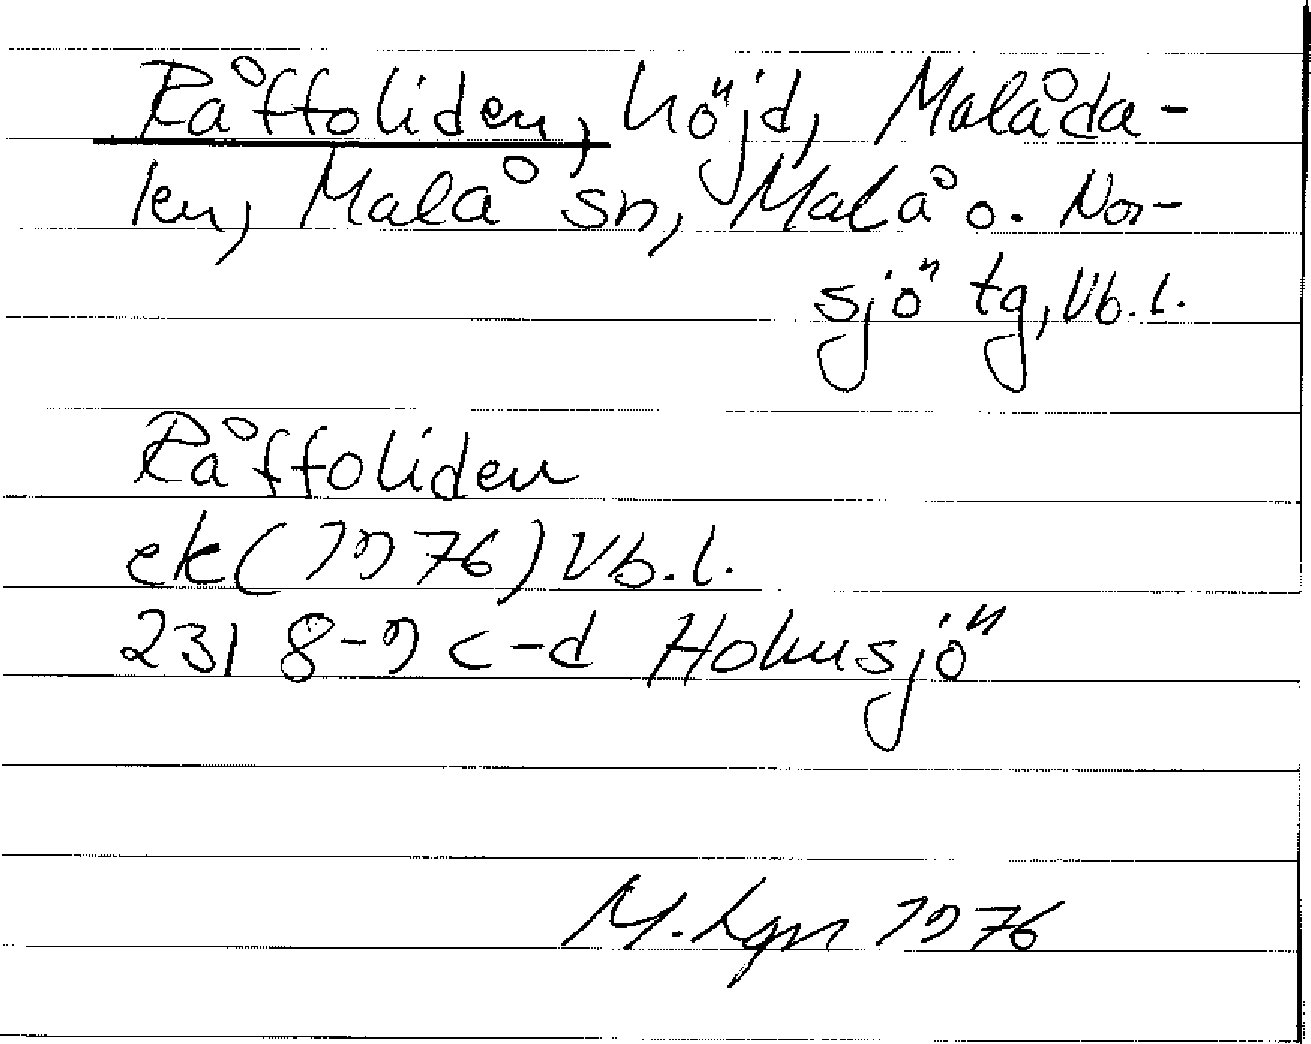 Råffoliden, höjd, Malåda-
len, Malå sn, Malå o. Nor-
sjö tg, Vb. l.
Råffoliden
ek (1976) Vb. l.
231 8-9 c-d Holmsjö
M. Lgn 1976